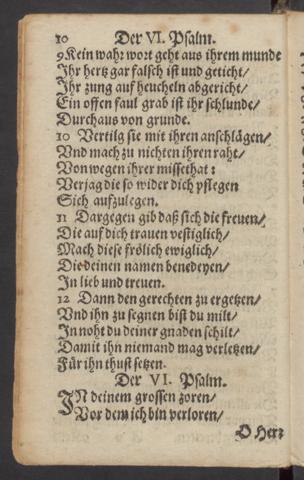 10 Der VI. Psalm.
9 Kein wahr wort geht aus ihrem munde
Ihr hertz gar falsch ist und geticht/
Ihr zung auf heucheln abgericht/
Ein offen faul grab ist ihr schlunde/
Durchaus von grunde.
10 Vertilg sie mit ihren anschlägen/
Und mach zu nichten ihren raht/
Von wegen ihrer missethat:
Verjag die so wider dich pflegen
Sich aufzulegen.
11 Dargegen gib daß sich die freuen/
Die auf dich trauen vestiglich/
Mach diese frölich ewiglich/
Die deinen namen benedeyen/
In lieb und treuen.
12 Dann den gerechten zu ergetzen/
Und ihn zu segnen bist du milt/
In noht du deiner gnaden schilt/
Damit ihn niemand mag verletzen/
Für ihn thust setzen.
Der VI. Psalm.
IN deinem grossen zoren/
Vor dem ich bin verloren/
O Herr